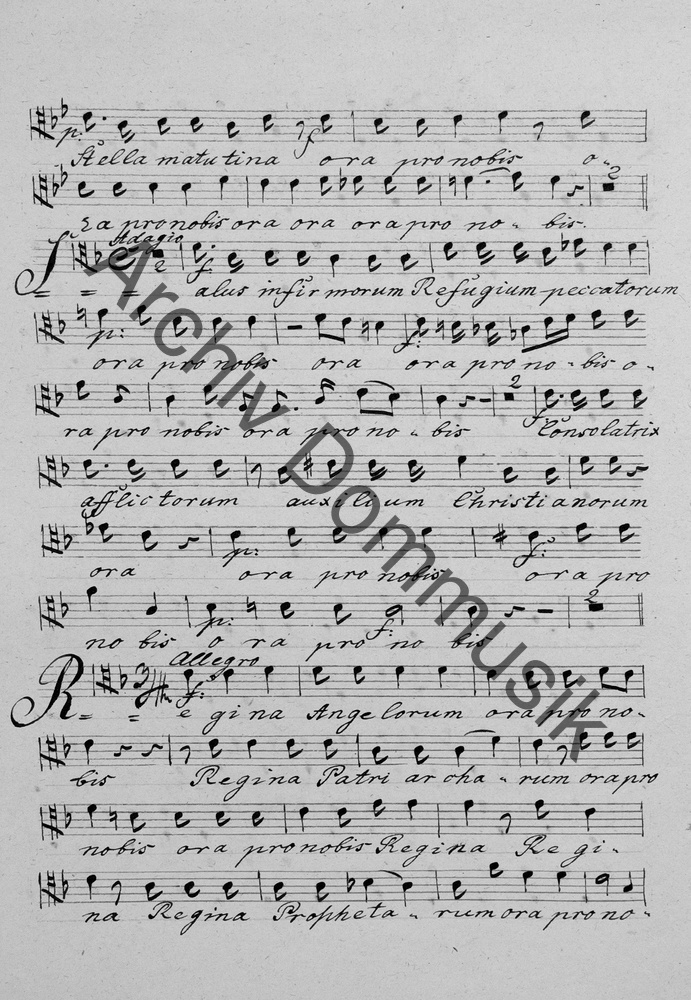 p. f
Stella matutina ora pro nobis o-
2
ra pro nobis ora ora ora pro no - bis.
Adagio
2 f.
S = = = alus infirmorum Refugium peccatorum
p: f:
ora pro nobis ora ora pro no - bis o -
2 f
ra pro nobis ora pro no - bis Consolatrix
afflictorum auxilium Christianorum
p: f:
ora ora pro nobis ora pro
p: f: 2
no bis o ra pro no bis
Allegro
3/4 f:
R = = egina Angelorum ora pro no -
bis Regina Patri archa - rum ora pro
nobis ora pro nobis Regina Re gi -
na Regina Propheta - rum ora pro no -
Archiv Dommusik